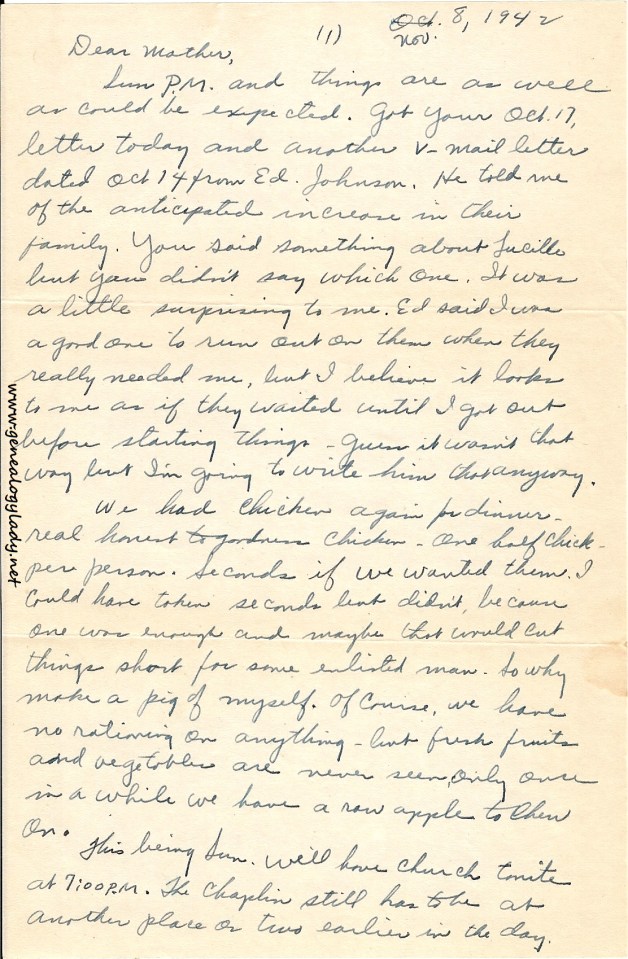 (1) Oct. 8, 1942
Nov.
Dear Mother,
Sun P.M. and things are as well
as could be expected. Got your Oct. 17,
letter today and another V-mail letter
dated Oct 14 from Ed. Johnson. He told me
of the anticipated increase in their
family. You said something about Lucille
but you didn't say which one. It was
a little surprising to me. Ed said I was
a good one to run out on them when they
really needed me, but I believe it looks
to me as if they waited until I got out
before starting things - Guess it wasn't that
way but I'm going to write him that anyway.
We had chicken again for dinner -
real honest to goodness chicken - One half chick -
per person. Seconds if we wanted them. I
could have taken seconds but didn't, because
one was enough and maybe that would cut
things short for some enlisted man. So why
make a pig of myself. Of course, we have
no rationing on anything - but fresh fruits
and vegetables are never seen, only once
in a while we have a raw apple to chew
on.
This being Sun. we'll have church tonite
at 7:00 P.M. The Chaplin still has to be at
another place or two earlier in the day.
www.genealogylady.net